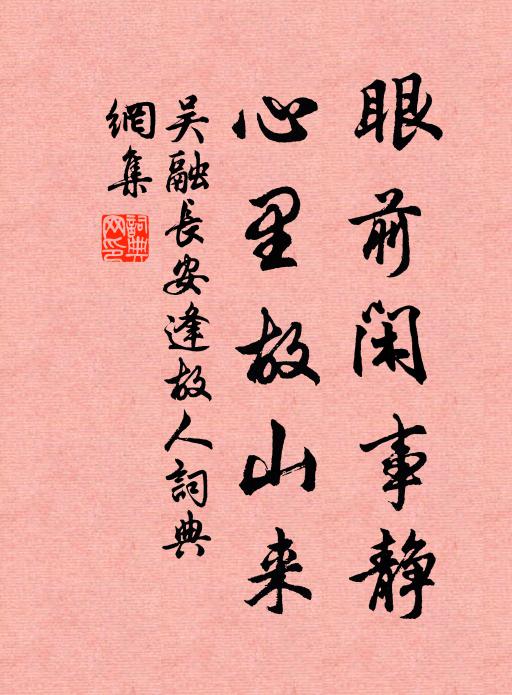 眼前闲事静
心里故山来
吴融長安逢故人詞典
網集
詞典网印